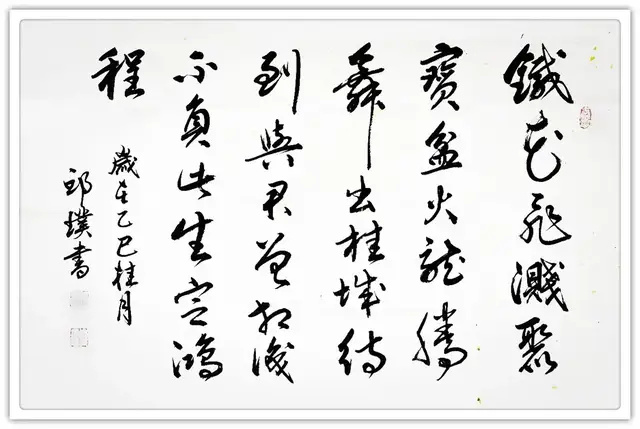 鐵花飛濺聚
寶盆火龍騰
舞出桂城待
到與君曾相識
不負此生定鴻
程
歲在乙巳桂月
邱璞書